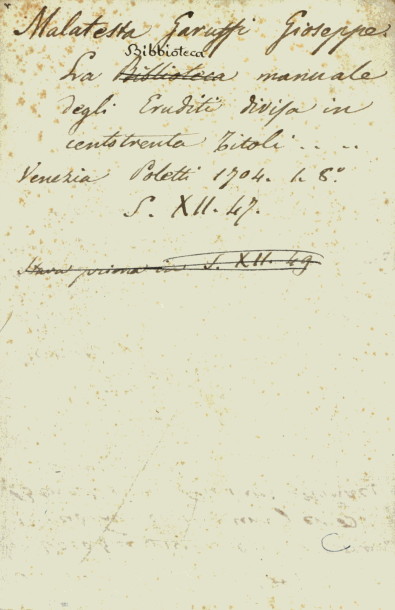 Malatesta Garuffi Gioseppe.
Bibbioteca
La Biblioteca manuale
degli Eruditi divisa in
centotrenta Titoli . . . .
Venezia Poletti 1704. 1. 8.º
S. XII. 47.
Stava prima in S. XII. 49